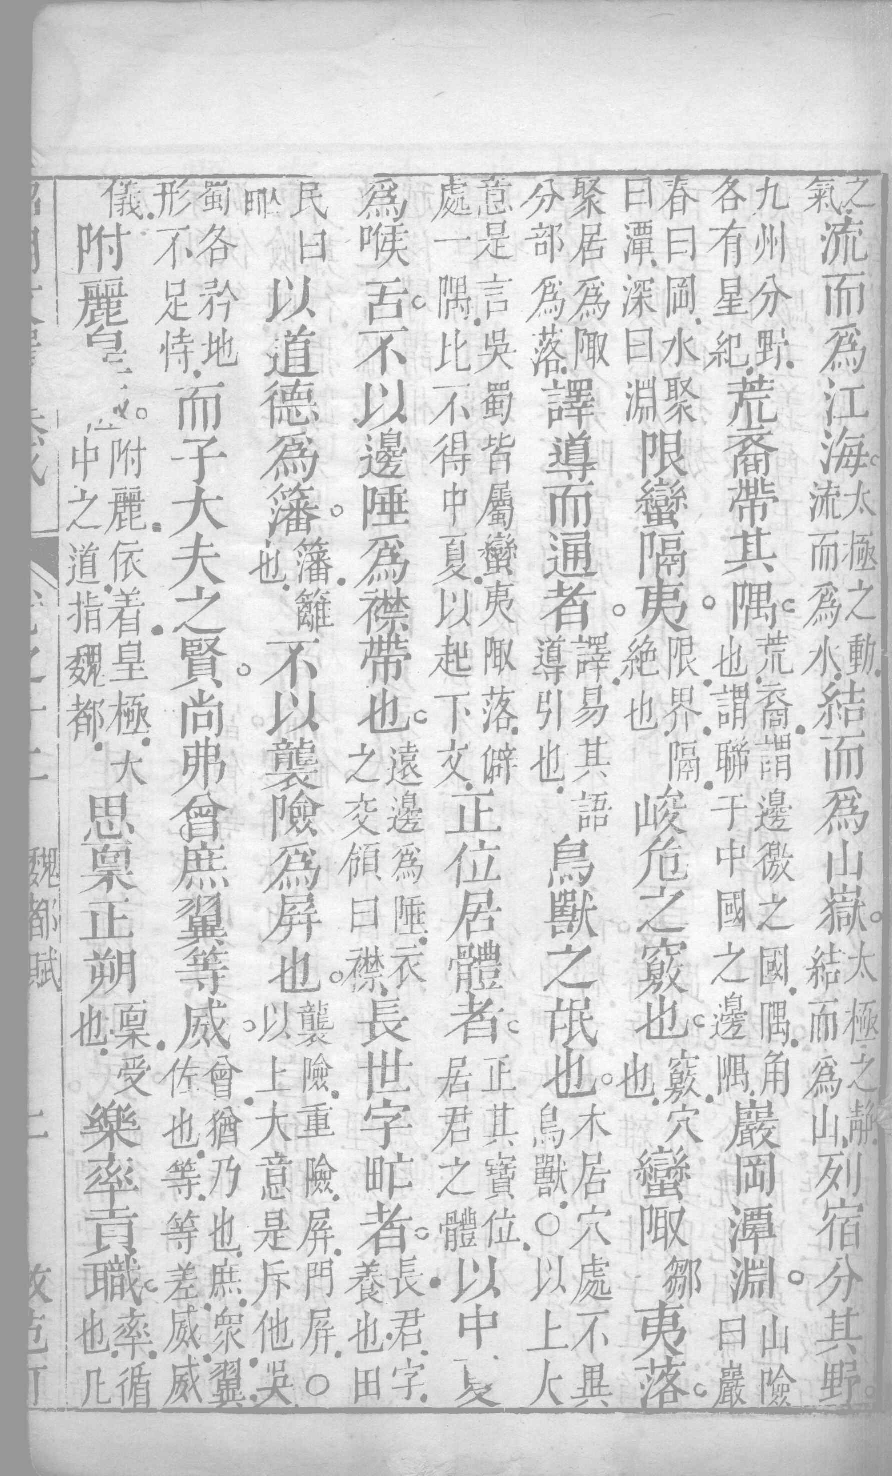 之氣流而爲江海。太極之動流而爲水結而爲山嶽。太極之靜結而爲山列宿分其野。
九州分野各有星紀荒裔帶其隅。荒裔謂邊徼之國隅角也謂聯于中國之邊隅巖岡潭淵。山險曰巖
春曰岡水聚曰潭深曰淵限蠻隔夷。限界隔絶也峻危之竅也。竅穴也蠻陬鄒夷落。
聚居爲陬分部爲落譯導而通者。譯易其語導引也鳥獸之氓也。木居穴處不異鳥獸○以上大
意是言吳蜀皆屬蠻夷陬落僻處一隅比不得中夏以起下文正位居體者。正其寶位居君之體以中夏
爲喉舌。不以邊陲爲襟帶也。遠邊爲陲衣之交領曰襟長世字甿者。長君字養也田
民曰甿以道德爲籓。籓籬也不以襲險爲屏也。襲險重險屏門屏○以上大意是斥他吳
蜀各矜地形不足恃而子大夫之賢。尚弗曾庶翼等威。曾猶乃也庶衆翼佐也等等差威威
儀附麗皇。附麗依着皇極大中之道指魏都思稟正朔稟受也樂率貢職。率循也凡
魏都賦